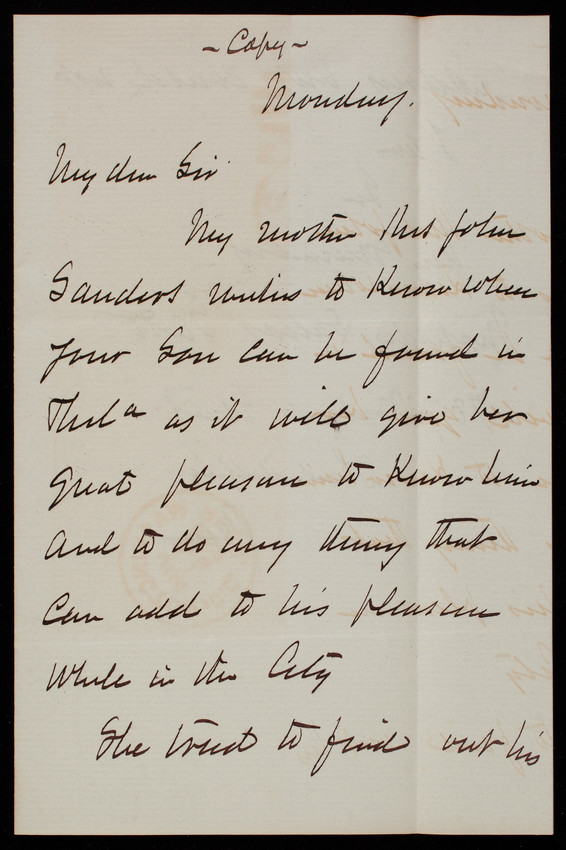 ~ Copy ~
Monday.
My dear Sir
My mother Mrs John
Sanders writes to Know where
your Son can be found in
Phila as it will give her
great pleasure to Know him
and to do any thing that
can add to his pleasure
while in the City
She tried to find out his